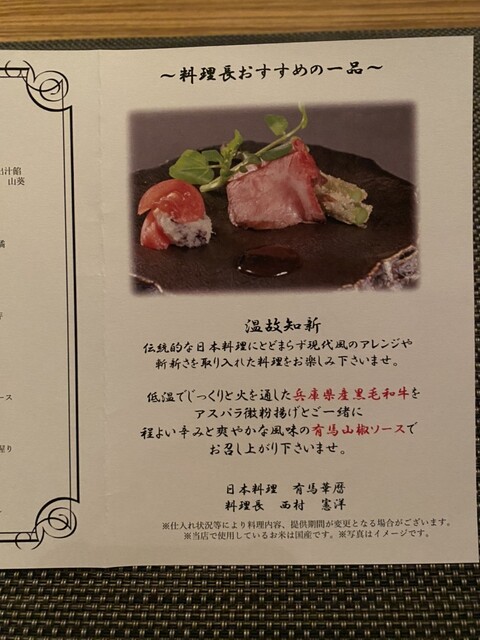 ～料理長おすすめの一品～
温故知新
伝統的な日本料理にとどまらず現代風のアレンジや
斬新さを取り入れた料理をお楽しみ下さいませ。
低温でじっくりと火を通した兵庫県産黒毛和牛を
アスパラ微粉揚げとご一緒に
程よい辛みと爽やかな風味の有馬山椒ソースで
お召し上がり下さいませ。
日本料理 有馬華暦
料理長 西村 憲洋
※仕入れ状況等により料理内容、提供期間が変更となる場合がございます。
※当店で使用しているお米は国産です。※写真はイメージです。
山葵
ース